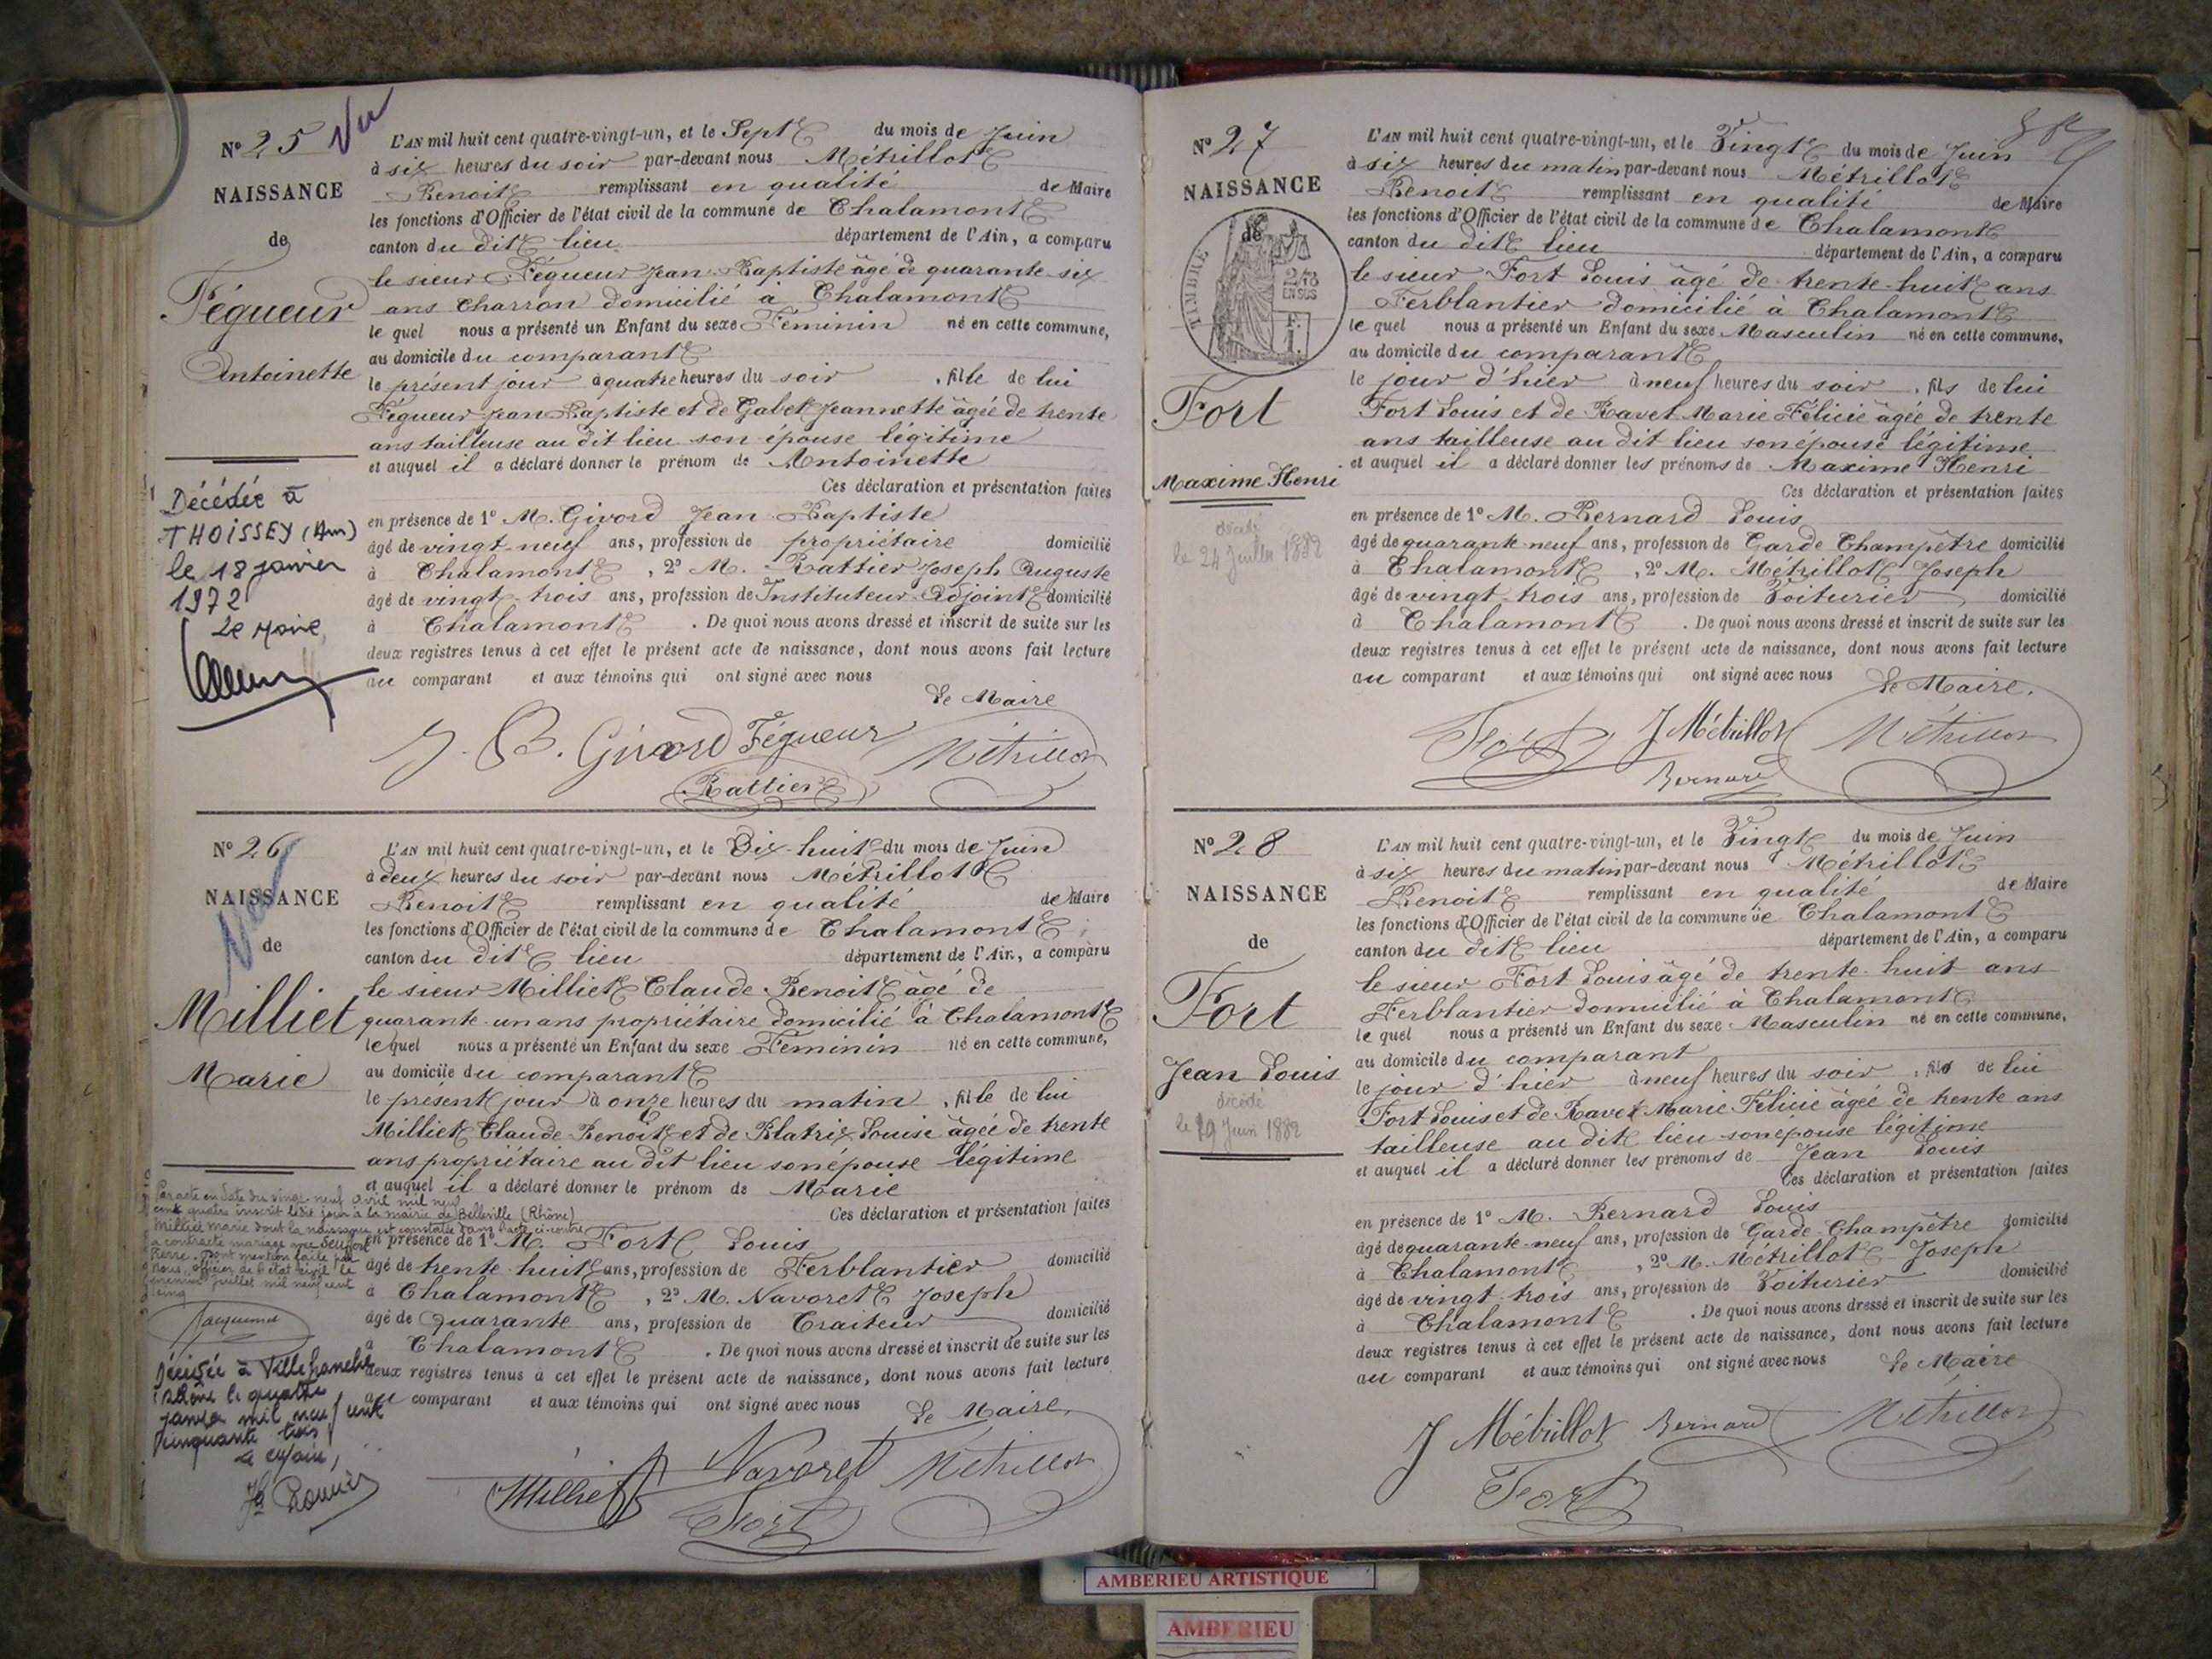 N° 25 Vu
NAISSANCE
de
Fégueur
Antoinette
Décédée à
THOISSEY (Ain)
le 18 janvier
1972
Le Maire
L'AN mil huit cent quatre-vingt-un, et le Sept du mois de Juin
à six heures du soir par-devant nous Métrillot
Benoit remplissant en qualité de Maire
les fonctions d'Officier de l'état civil de la commune de Chalamont
canton du dit lieu département de l'Ain, a comparu
le sieur Fégueur Jean-Baptiste âgé de quarante-six
ans charron domicilié à Chalamont
le quel nous a présenté un Enfant du sexe Féminin né en cette commune,
au domicile du comparant
le présent jour à quatre heures du soir , fille de lui
Fégueur Jean-Baptiste et de Gabet Jeannette âgée de trente
ans tailleuse au dit lieu son épouse légitime
et auquel il a déclaré donner le prénom de Antoinette
Ces déclaration et présentation faites
en présence de 1° M. Givord Jean-Baptiste
âgé de vingt-neuf ans, profession de propriétaire domicilié
à Chalamont , 2° M. Rattier Joseph Auguste
âgé de vingt-trois ans, profession de Instituteur-Adjoint domicilié
à Chalamont . De quoi nous avons dressé et inscrit de suite sur les
deux registres tenus à cet effet le présent acte de naissance, dont nous avons fait lecture
au comparant et aux témoins qui ont signé avec nous
Le Maire
J. B. Givord Fégueur Métrillot
Rattier
N° 26
NAISSANCE
de
Milliet
Marie
Par acte en date du vingt-neuf avril mil neuf
cent quatre inscrit ledit jour à la mairie de Belleville (Rhône)
Milliet Marie dont la naissance est constatée dans l'acte ci-contre
a contracté mariage avec
Pierre. Dont mention faite par
Nous, officier de l'état civil le
juillet mil neuf cent
cinq
Jacquemet
Décédée à Villefranche
s/Saône le quatre
janvier mil neuf cent
cinquante trois
Le Maire,
L'AN mil huit cent quatre-vingt-un, et le Dix-huit du mois de Juin
à deux heures du soir par-devant nous Métrillot
Benoit remplissant en qualité de Maire
les fonctions d'Officier de l'état civil de la commune de Chalamont
canton du dit lieu département de l'Ain, a comparu
le sieur Milliet Claude Benoit âgé de
quarante-un ans propriétaire domicilié à Chalamont
le quel nous a présenté un Enfant du sexe Féminin né en cette commune,
au domicile du comparant
le présent jour à onze heures du matin , fille de lui
Milliet Claude Benoit et de Blatrix Louise âgée de trente
ans propriétaire au dit lieu son épouse légitime
et auquel il a déclaré donner le prénom de Marie
Ces déclaration et présentation faites
en présence de 1° M. Fort Louis
âgé de trente-huit ans, profession de Ferblantier domicilié
à Chalamont , 2° M. Navoret Joseph
âgé de Quarante ans, profession de Traiteur domicilié
à Chalamont . De quoi nous avons dressé et inscrit de suite sur les
deux registres tenus à cet effet le présent acte de naissance, dont nous avons fait lecture
au comparant et aux témoins qui ont signé avec nous
Le Maire
Milliet Navoret Métrillot
Fort
N° 27
NAISSANCE
de
TIMBRE
2/10
EN SUS
F.
1.
Fort
Maxime Henri
décédé
le 24 Juillet 1882
L'AN mil huit cent quatre-vingt-un, et le Vingt du mois de Juin
à six heures du matin par-devant nous Métrillot
Benoit remplissant en qualité de Maire
les fonctions d'Officier de l'état civil de la commune de Chalamont
canton du dit lieu département de l'Ain, a comparu
le sieur Fort Louis âgé de trente-huit ans
Ferblantier domicilié à Chalamont
le quel nous a présenté un Enfant du sexe Masculin né en cette commune,
au domicile du comparant
le jour d'hier à neuf heures du soir , fils de lui
Fort Louis et de Ravet Marie Félicie âgée de trente
ans tailleuse au dit lieu son épouse légitime
et auquel il a déclaré donner les prénoms de Maxime Henri
Ces déclaration et présentation faites
en présence de 1° M. Bernard Louis
âgé de quarante-neuf ans, profession de Garde Champêtre domicilié
à Chalamont , 2° M. Métrillot Joseph
âgé de vingt-trois ans, profession de Voiturier domicilié
à Chalamont . De quoi nous avons dressé et inscrit de suite sur les
deux registres tenus à cet effet le présent acte de naissance, dont nous avons fait lecture
au comparant et aux témoins qui ont signé avec nous
Le Maire.
Fort J Métrillot Métrillot
Bernard
N° 28
NAISSANCE
de
Fort
Jean Louis
décédé
le 29 Juin 1882
L'AN mil huit cent quatre-vingt-un, et le Vingt du mois de Juin
à six heures du matin par-devant nous Métrillot
Benoit remplissant en qualité de Maire
les fonctions d'Officier de l'état civil de la commune de Chalamont
canton du dit lieu département de l'Ain, a comparu
le sieur Fort Louis âgé de trente-huit ans
Ferblantier domicilié à Chalamont
le quel nous a présenté un Enfant du sexe Masculin né en cette commune,
au domicile du comparant
le jour d'hier à neuf heures du soir , fils de lui
Fort Louis et de Ravet Marie Félicie âgée de trente ans
tailleuse au dit lieu son épouse légitime
et auquel il a déclaré donner les prénoms de Jean Louis
Ces déclaration et présentation faites
en présence de 1° M. Bernard Louis
âgé de quarante-neuf ans, profession de Garde-Champêtre domicilié
à Chalamont , 2° M. Métrillot Joseph
âgé de vingt-trois ans, profession de Voiturier domicilié
à Chalamont . De quoi nous avons dressé et inscrit de suite sur les
deux registres tenus à cet effet le présent acte de naissance, dont nous avons fait lecture
au comparant et aux témoins qui ont signé avec nous
Le Maire
J Métrillot Bernard Métrillot
Fort
AMBERIEU ARTISTIQUE
AMBERIEU